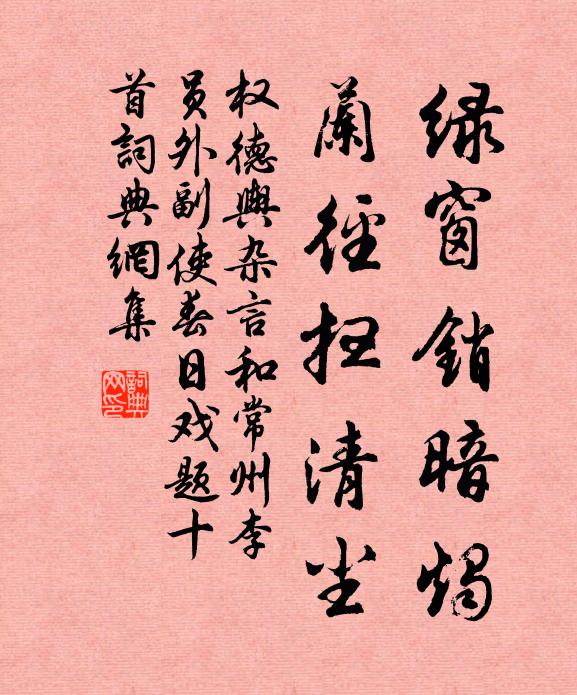 绿窗銷暗烛
蘭徑扫清尘
权德輿杂言和常州李
員外副使春日戏题十
首詞典網集
詞典网印